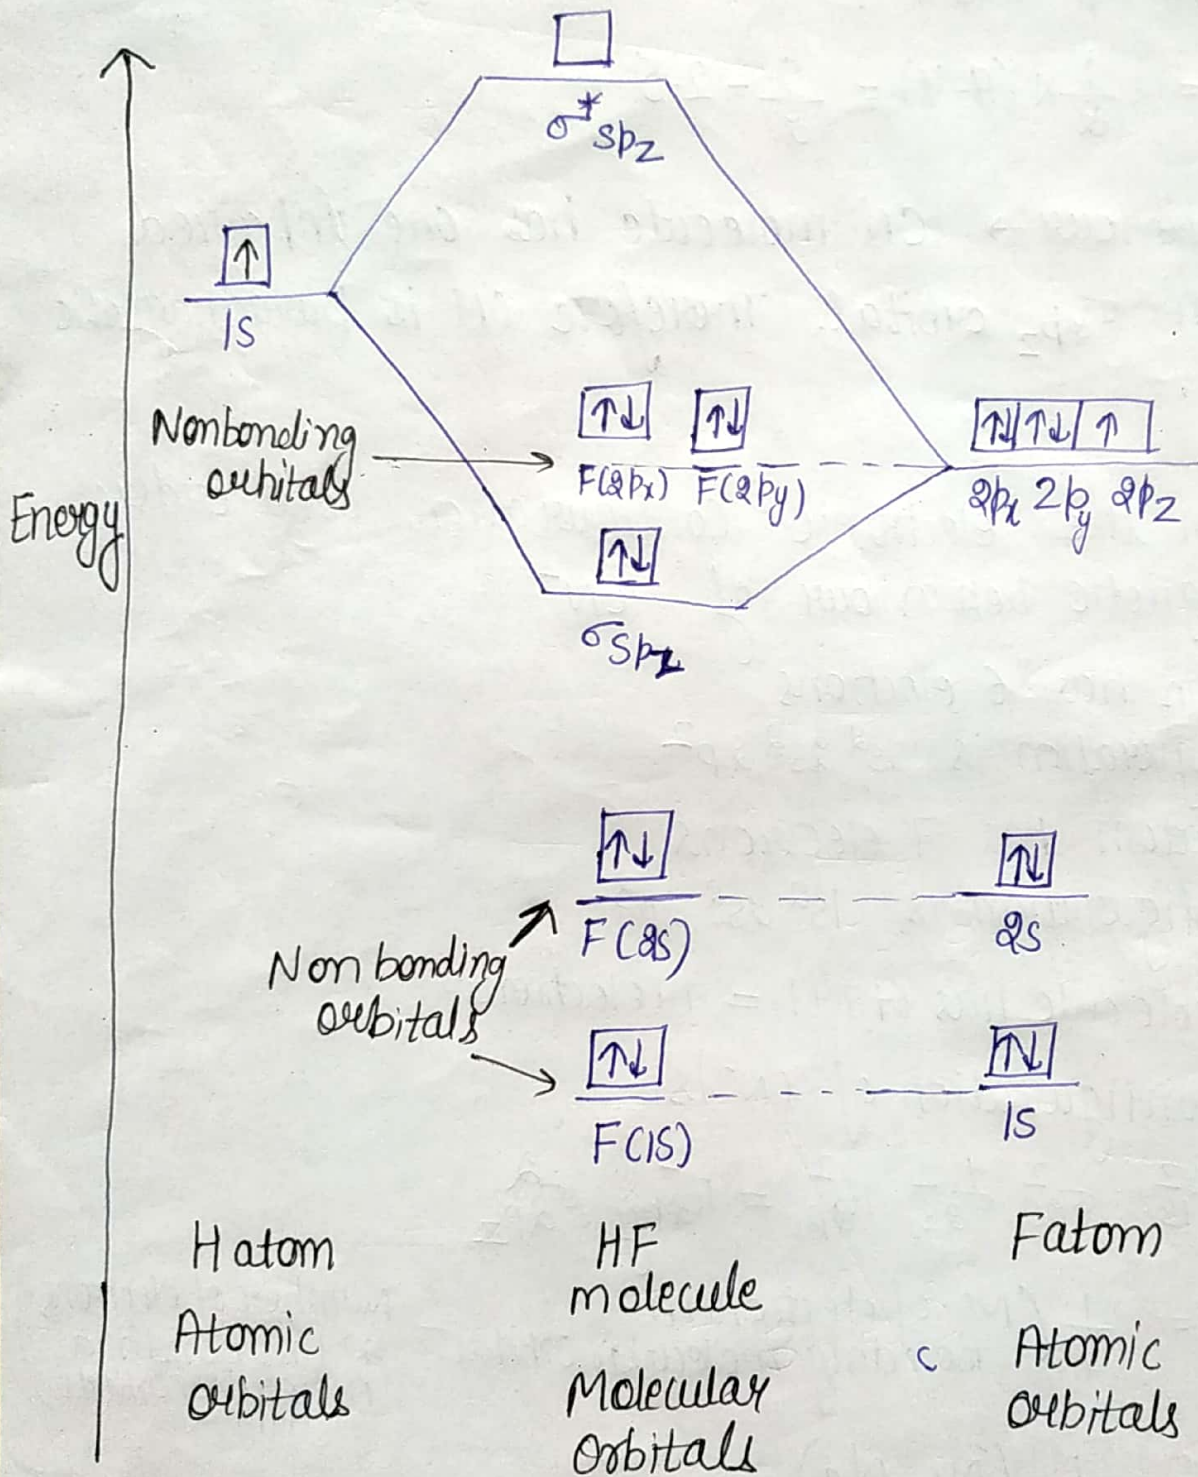 σ* spz
↑
1S
Nonbonding
orbitals
↑↓ ↑↓
F(2px) F(2py)
↑↓ ↑↓ ↑
2px 2py 2pz
Energy
↑↓
σ spz
↑↓
F(2S)
↑↓
2S
Non bonding
orbitals
↑↓
F(1S)
↑↓
1S
H atom
Atomic
orbitals
HF
molecule
Molecular
Orbitals
F atom
Atomic
orbitals